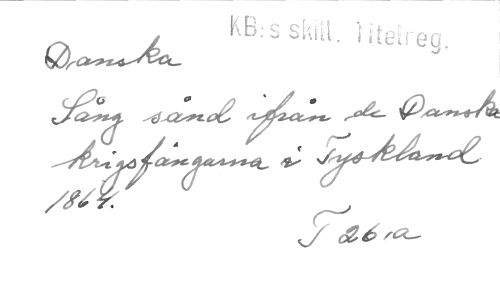 KB:s skill. Titelreg.
Danska
Sång sänd ifrån de Danska
krigsfångarna i Tyskland
1864.
T 26:a